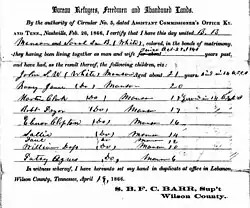 Bureau Refugees, Freedmen and Abandoned Lands.
By the authority of Circular No. 5, dated Assistant Commissioner's Office Ky.
and Tenn., Nashville, Feb. 26, 1866, I certify that I have this day united B. B.
Manson and Sarah Ann B. (White), colored, in the bands of matrimony,
they having been living together as man and wife since Oct. 24, 1843 years past,
and have had, as the result thereof, the following children, viz:
John (White) Manson aged 21 years
Mary Jane (Do) 20
Martin Clark (Do) Manson 18
Manson 17
Elmer (Do) Manson 16
Sallie Manson 14
Manson 12
William (Do) Manson 10
Patsy Agnes (Do) Manson 6
In witness whereof, I have hereunto set my hand in duplicate at office in Lebanon,
Wilson County, Tennessee, April 19, 1866.
S. B. F. C. BARR, Sup't
Wilson County.